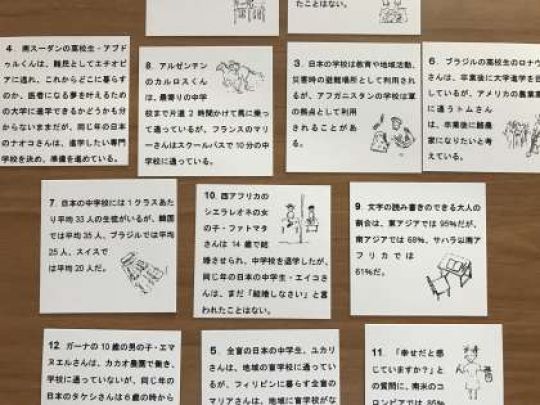 たことはない。
4．南スーダンの高校生・アブド
ゥルくんは、難民としてエチオピ
アに逃れ、これからどこに暮らす
のか、医者になる夢を叶えるため
の大学に進学できるかどうかも分
からないままだが、同じ年の日本
のナオコさんは、進学したい専門
学校を決め、準備を進めている。
8．アルゼンチン
のカルロスくん
は、最寄りの中学
校まで片道2時間かけて馬に乗っ
て通っているが、フランスのマリ
ーさんはスクールバスで10分の中
学校に通っている。
3．日本の学校は教育や地域活動、
災害時の避難場所として利用され
るが、アフガニスタンの学校は軍
の拠点として利用
されることがあ
る。
6．ブラジルの高校生のロナウ
さんは、卒業後に大学進学を目
しているが、アメリカの農業高
に通うトムさん
は、卒業後に酪農
家になりたいと考
えている。
7．日本の中学校には1クラスあた
り平均33人の生徒がいるが、韓国
では平均35人、ブラジルでは平均
25人、スイスで
は平均20人だ。
10．西アフリカの
シエラレオネの女
の子・ファトマタ
さんは14歳で結
婚させられ、中学校を退学したが、
同じ年の日本の中学生・エイコさ
んは、まだ「結婚しなさい」と言
われたことはない。
9．文字の読み書きのできる大人の
割合は、東アジアでは95%だが、
南アジアでは68%、サハラ以南ア
フリカでは
61%だ。
12．ガーナの10歳の男の子・エマ
ヌエルさんは、カカオ農園で働き、
学校に通っていないが、同じ年の
日本のタケシさんは6歳の時から
5．全盲の日本の中学生、ユカリ
さんは、地域の盲学校に通ってい
るが、フィリピンに暮らす全盲の
マリアさんは、地域に盲学校がな
11．「幸せだと感
じていますか？」と
の質問に、南米のコ
ロンビアでは85%